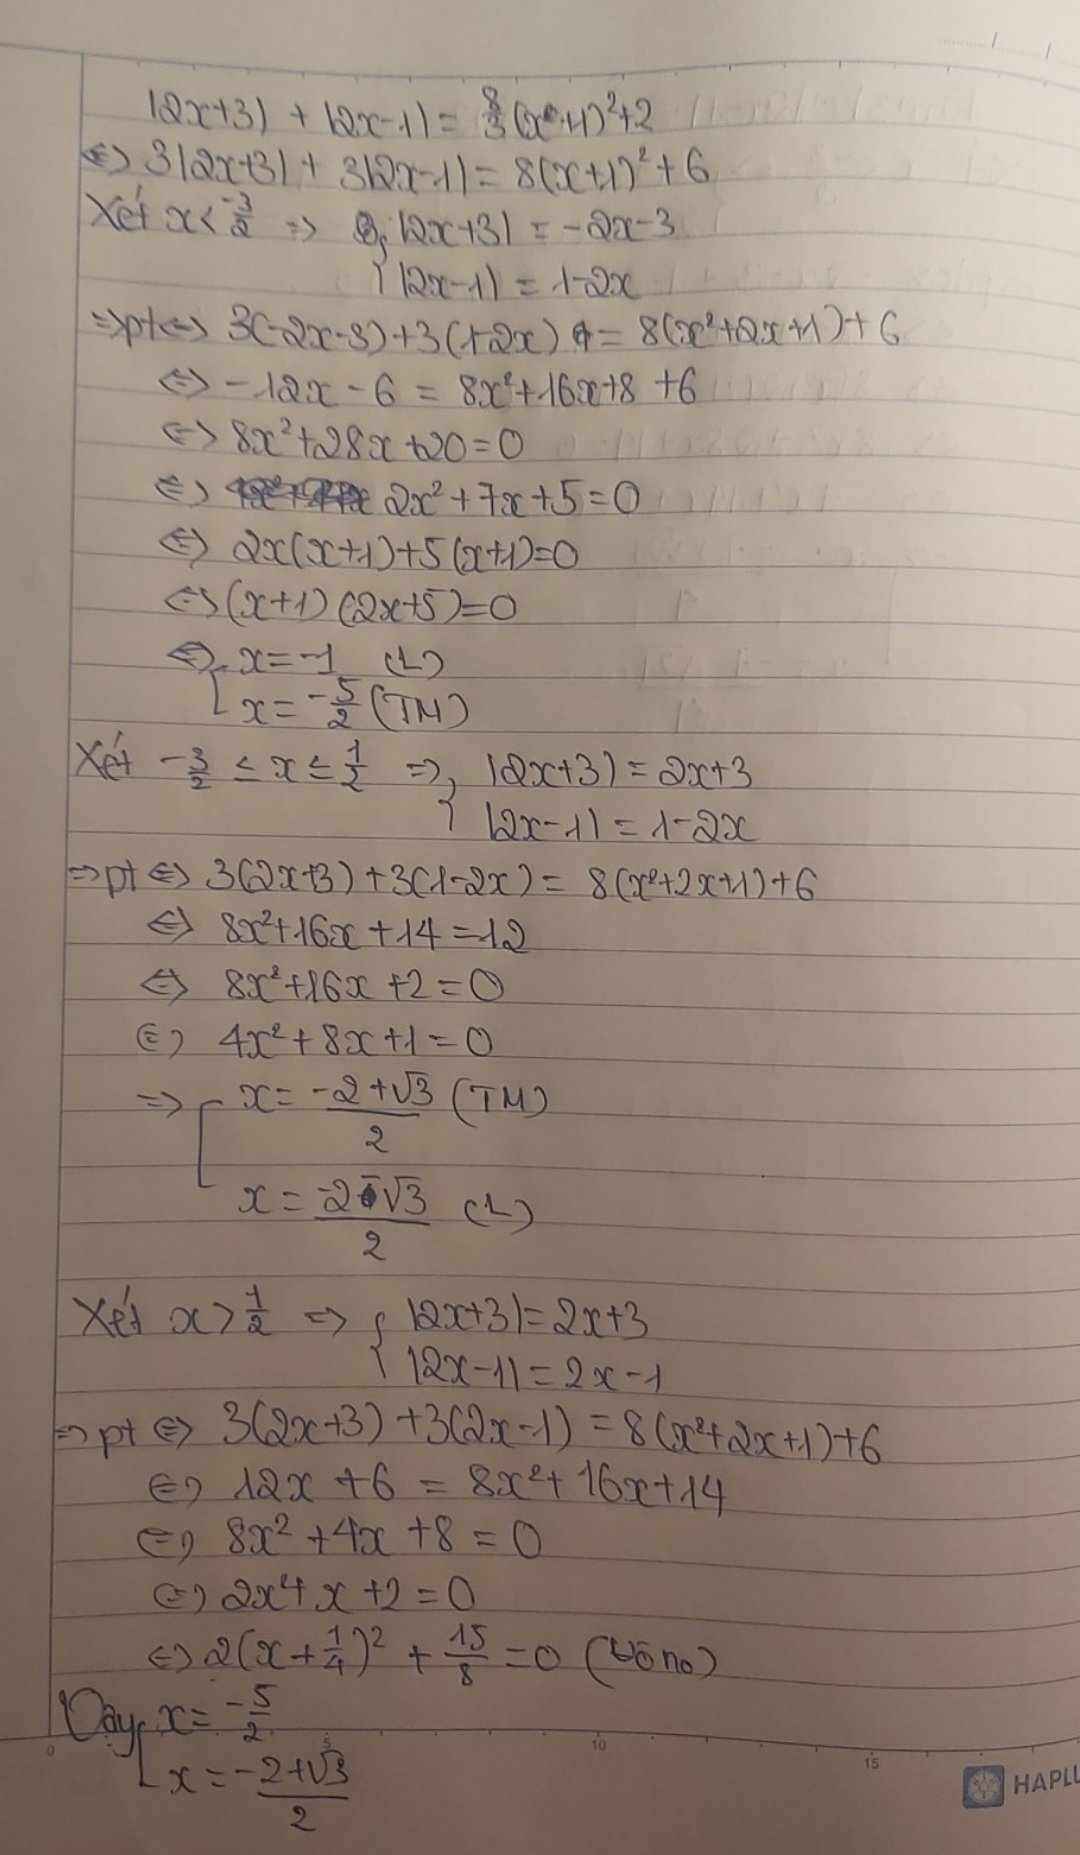 |2x+3| + |2x-1| = 8/3 (x+1)²+2
⇔ 3|2x+3| + 3|2x-1| = 8(x+1)² + 6
Xét x < -3/2 ⇒ { |2x+3| = -2x-3
|2x-1| = 1-2x
⇒ pt ⇔ 3(-2x-3)+3(1-2x) = 8(x²+2x+1)+6
⇔ -12x - 6 = 8x²+16x+8 +6
⇔ 8x²+28x+20=0
⇔ 2x²+7x+5=0
⇔ 2x(x+1)+5(x+1)=0
⇔ (x+1)(2x+5)=0
⇔ [ x=-1 (L)
x = -5/2 (TM)
Xét -3/2 ≤ x ≤ 1/2 ⇒ { |2x+3| = 2x+3
|2x-1| = 1-2x
⇒ pt ⇔ 3(2x+3)+3(1-2x) = 8(x²+2x+1)+6
⇔ 8x²+16x+14=12
⇔ 8x²+16x+2=0
⇔ 4x²+8x+1=0
⇒ [ x = (-2+√3)/2 (TM)
x = (-2-√3)/2 (L)
Xét x > 1/2 ⇒ { |2x+3|=2x+3
|2x-1|=2x-1
⇒ pt ⇔ 3(2x+3)+3(2x-1) = 8(x²+2x+1)+6
⇔ 12x+6 = 8x²+16x+14
⇔ 8x²+4x+8=0
⇔ 2x²+x+2=0
⇔ 2(x+1/4)² + 15/8 = 0 (Vô no)
Vậy [ x = -5/2
x = (-2+√3)/2
0 5 10 15
HAPLU